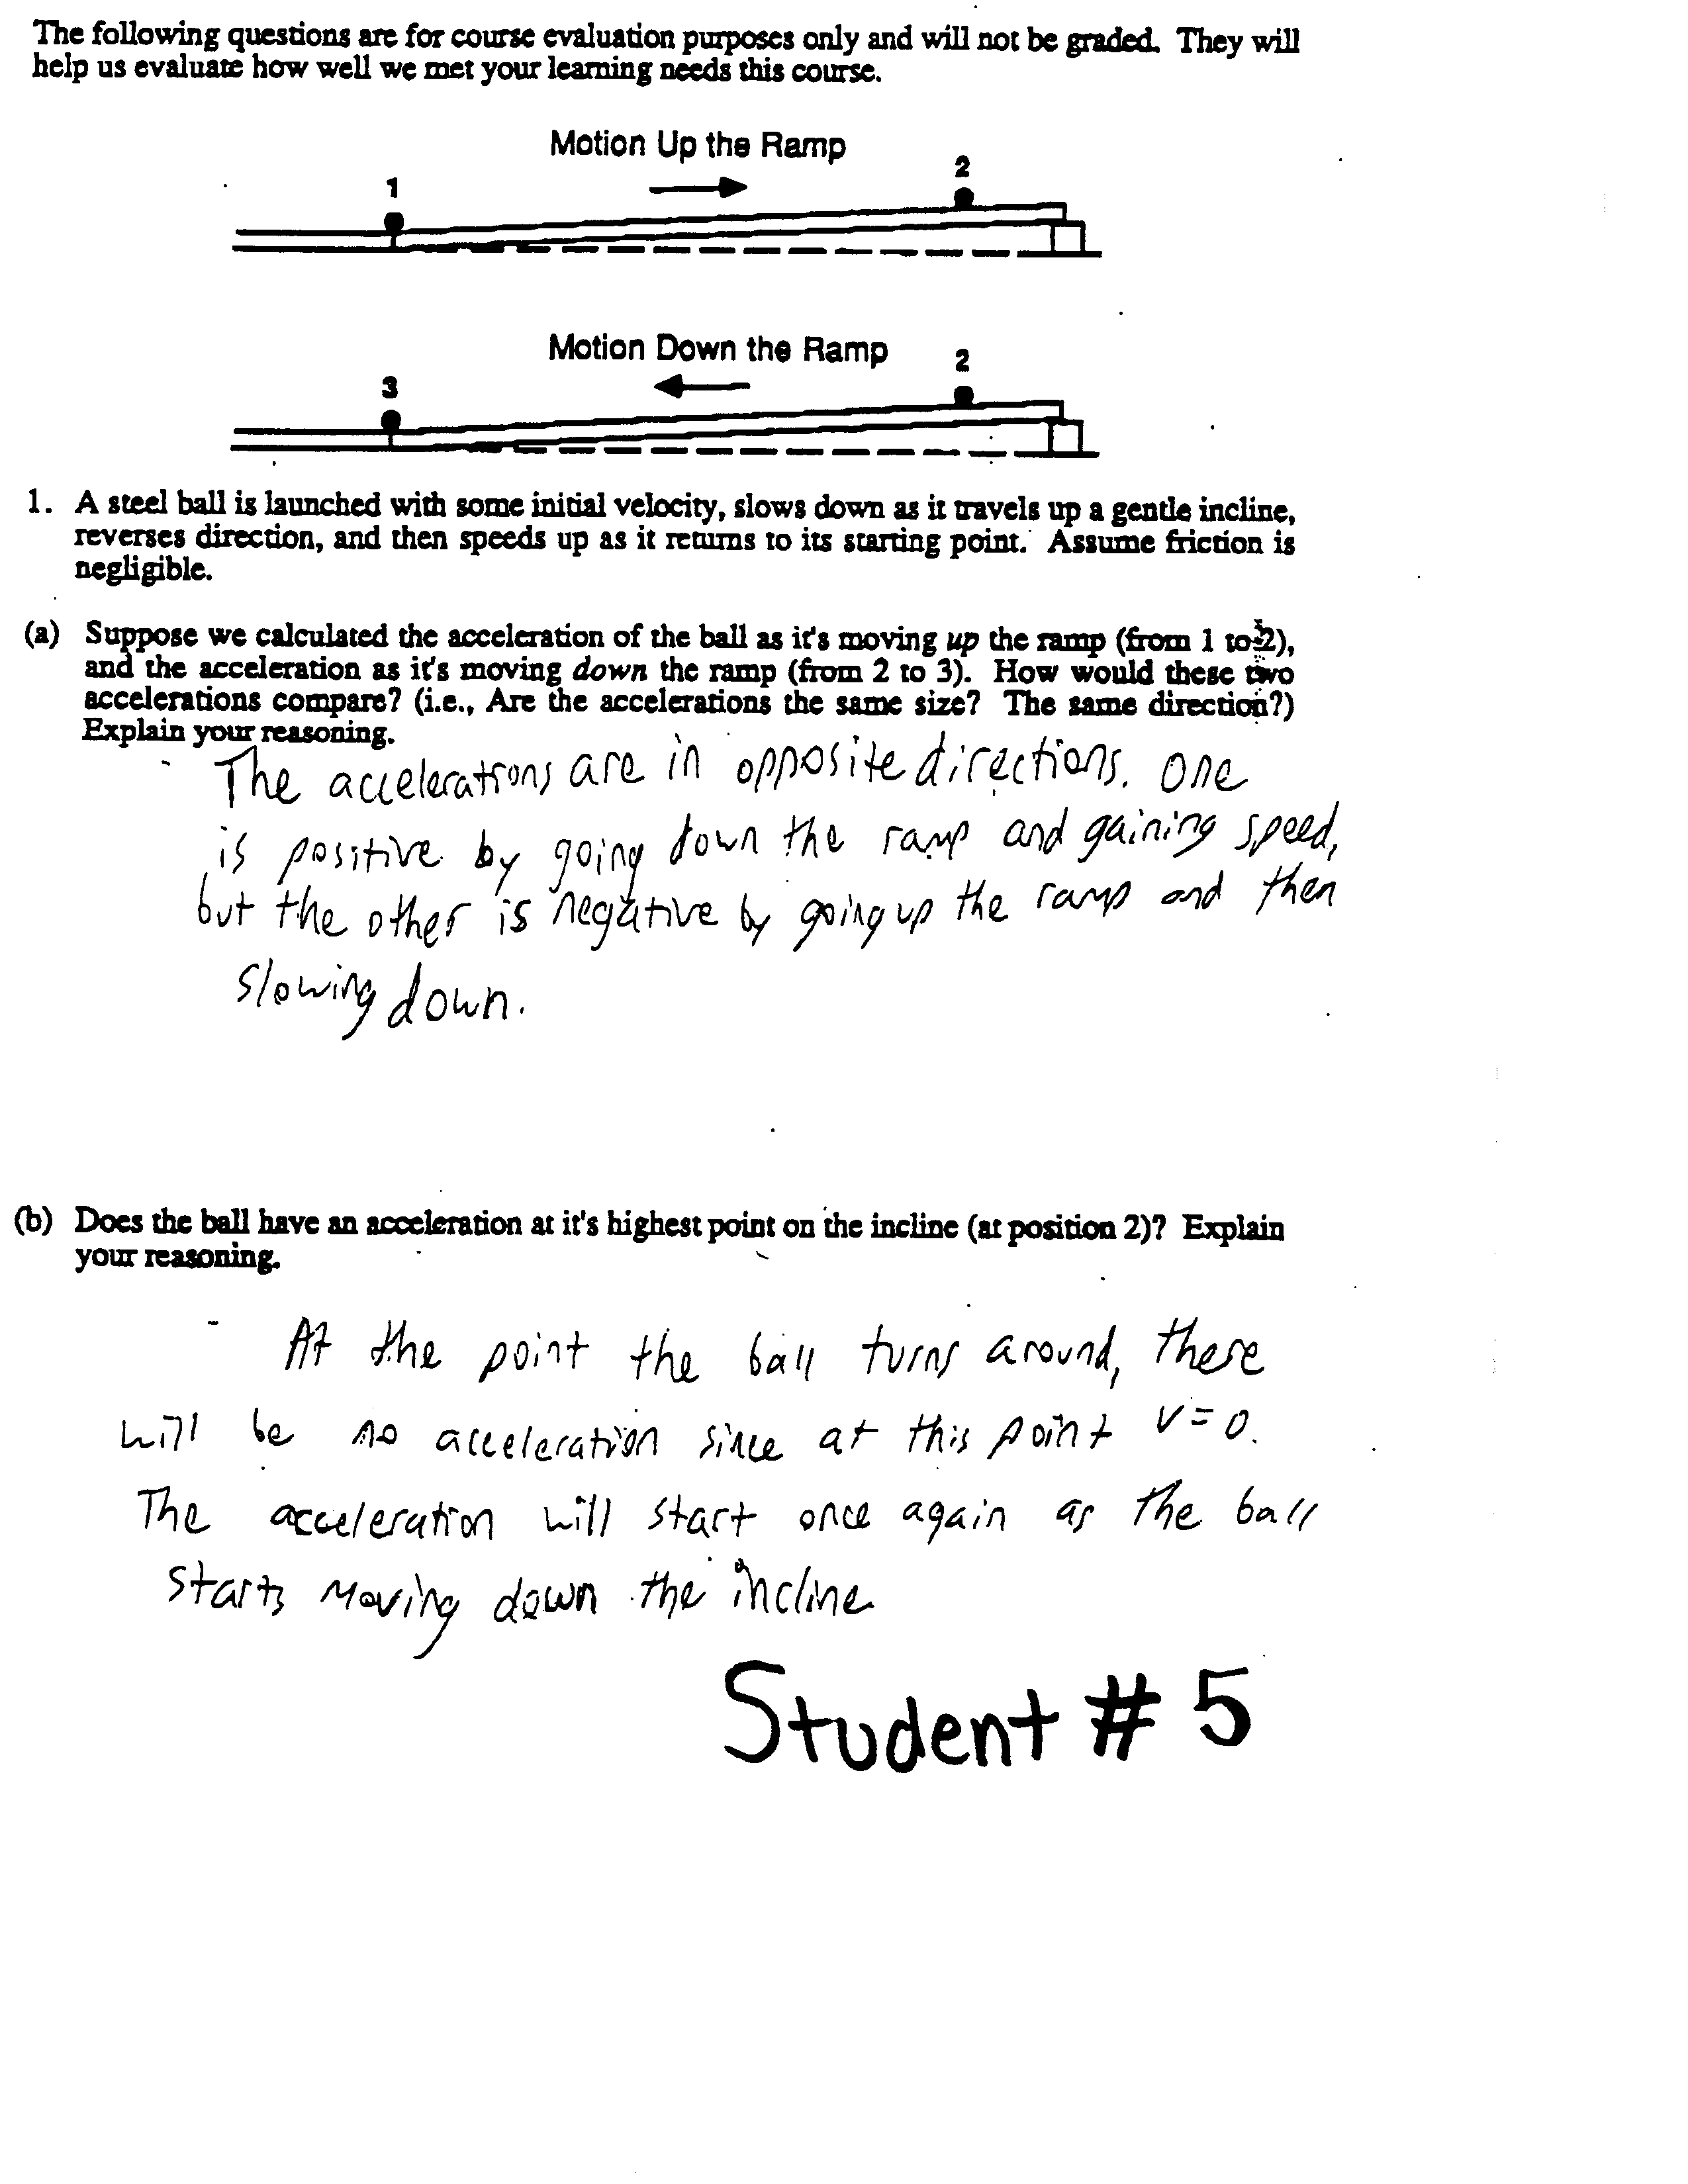 The following questions are for course evaluation purposes only and will not be graded. They will
help us evaluate how well we met your learning needs this course.
Motion Up the Ramp
1
2
Motion Down the Ramp
3
2
1. A steel ball is launched with some initial velocity, slows down as it travels up a gentle incline,
reverses direction, and then speeds up as it returns to its starting point. Assume friction is
negligible.
(a) Suppose we calculated the acceleration of the ball as it's moving up the ramp (from 1 to 2),
and the acceleration as it's moving down the ramp (from 2 to 3). How would these two
accelerations compare? (i.e., Are the accelerations the same size? The same direction?)
Explain your reasoning.
The accelerations are in opposite directions. One
is positive by going down the ramp and gaining speed,
but the other is negative by going up the ramp and then
slowing down.
(b) Does the ball have an acceleration at it's highest point on the incline (at position 2)? Explain
your reasoning.
At the point the ball turns around, there
will be no acceleration since at this point v=0.
The acceleration will start once again as the ball
starts moving down the incline
Student # 5